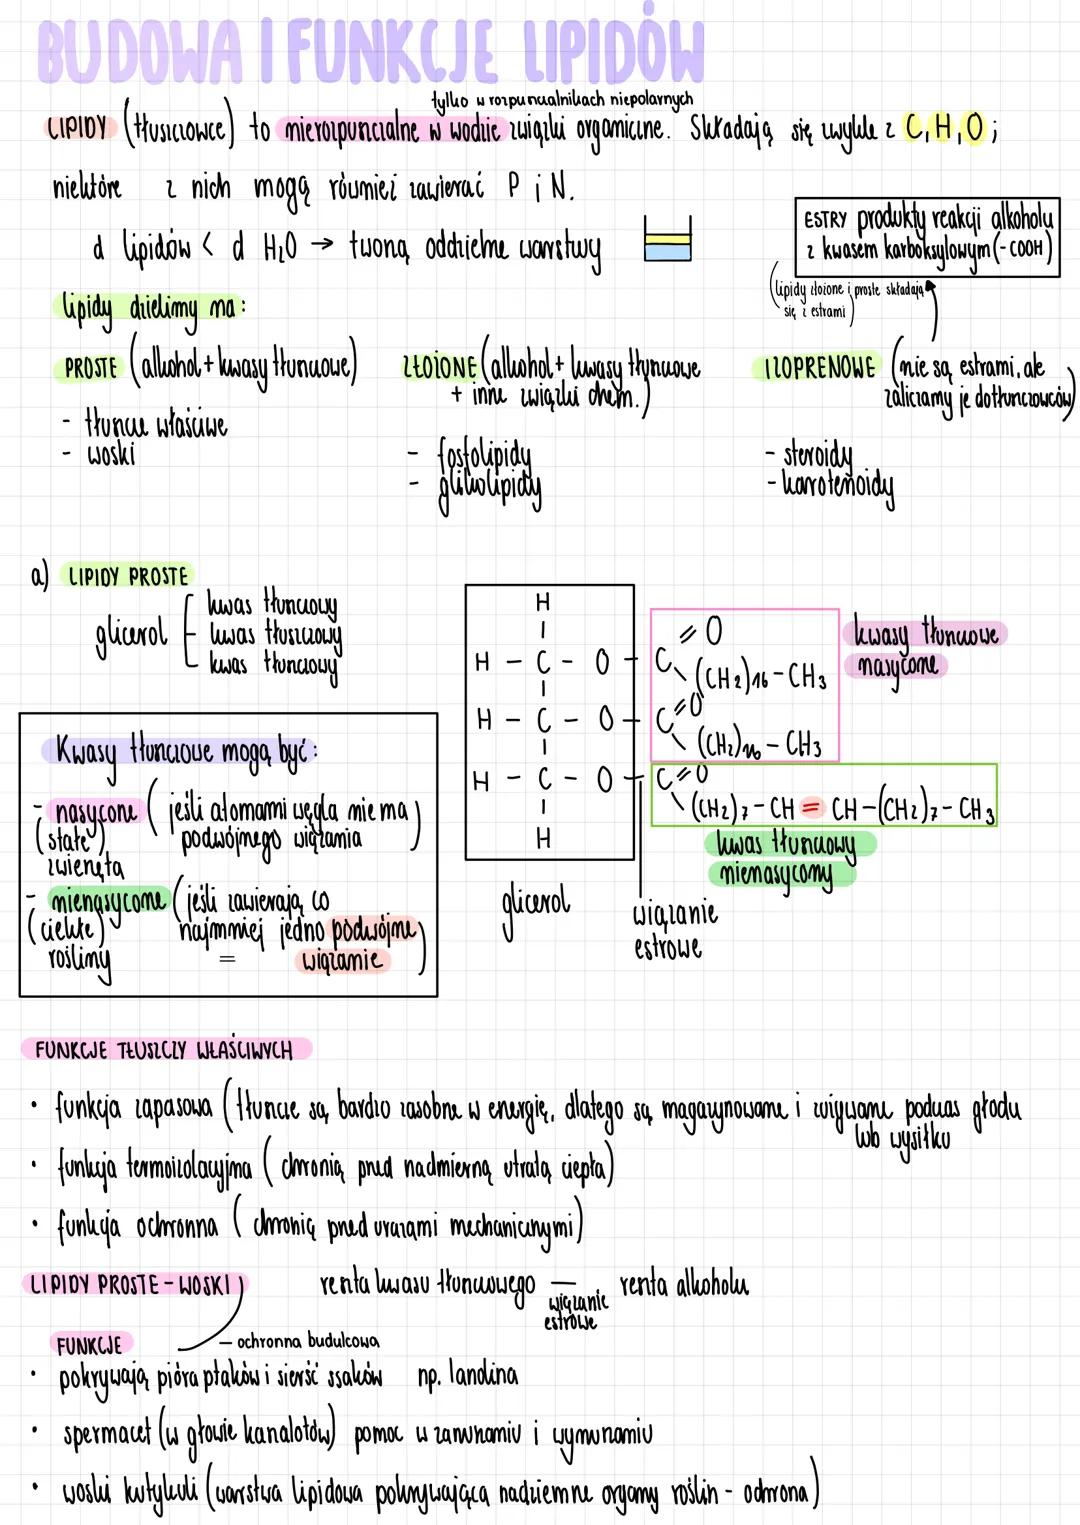 BUDOWA I FUNKCJE LIPIDÓW
tylko w rozpuszczalnikach niepolarnych
LIPIDY (tłuszczowce) to nierozpuszczalne w wodzie związki organiczne. Składają się zwykle z C, H, O;
niektóre z nich mogą również zawierać P i N.
d lipidów < d H₂O → tworzą oddzielne warstwy
ESTRY produkty reakcji alkoholu
z kwasem karboksylowym (-COOH)
(lipidy złożone i proste składają
się z estrami)
lipidy dzielimy na:
PROSTE (alkohol + kwasy tłuszczowe)
- tłuszcze właściwe
- woski
ZŁOŻONE (alkohol + kwasy tłuszczowe
+ inne związki chem.)
- fosfolipidy
- glikolipidy
IZOPRENOWE (nie są estrami, ale
zaliczamy je do tłuszczowców)
- steroidy
- karotenoidy
a) LIPIDY PROSTE
glicerol
kwas tłuszczowy
kwas tłuszczowy
kwas tłuszczowy
Kwasy tłuszczowe mogą być:
- nasycone (jeśli atomami węgla nie ma
podwójnego wiązania)
(stałe)
zwierzęta
- nienasycone (jeśli zawierają co
najmniej jedno podwójne
= wiązanie)
(ciekłe)
rośliny
H
H - C - O - C =O
(CH₂)₁₆ - CH₃
H - C - O - C =O
(CH₂)₁₆ - CH₃
H - C - O - C =O
(CH₂)₇ - CH = CH - (CH₂)₇ - CH₃
H
kwasy tłuszczowe
nasycone
kwas tłuszczowy
nienasycony
glicerol
wiązanie
estrowe
FUNKCJE TŁUSZCZY WŁAŚCIWYCH
• funkcja zapasowa (tłuszcze są bardzo zasobne w energię, dlatego są magazynowane i zużywane podczas głodu
lub wysiłku
• funkcja termoizolacyjna (chronią przed nadmierną utratą ciepła)
• funkcja ochronna (chronią przed urazami mechanicznymi)
LIPIDY PROSTE - WOSKI
reszta kwasu tłuszczowego — reszta alkoholu
wiązanie
estrowe
FUNKCJE
- ochronna budulcowa
• pokrywają pióra ptaków i sierść ssaków np. landina
• spermacet (w głowie kanalotów) pomoc w zanurzaniu i wynurzaniu
• woski kutykuli (warstwa lipidowa pokrywająca nadziemne organy roślin - ochrona)